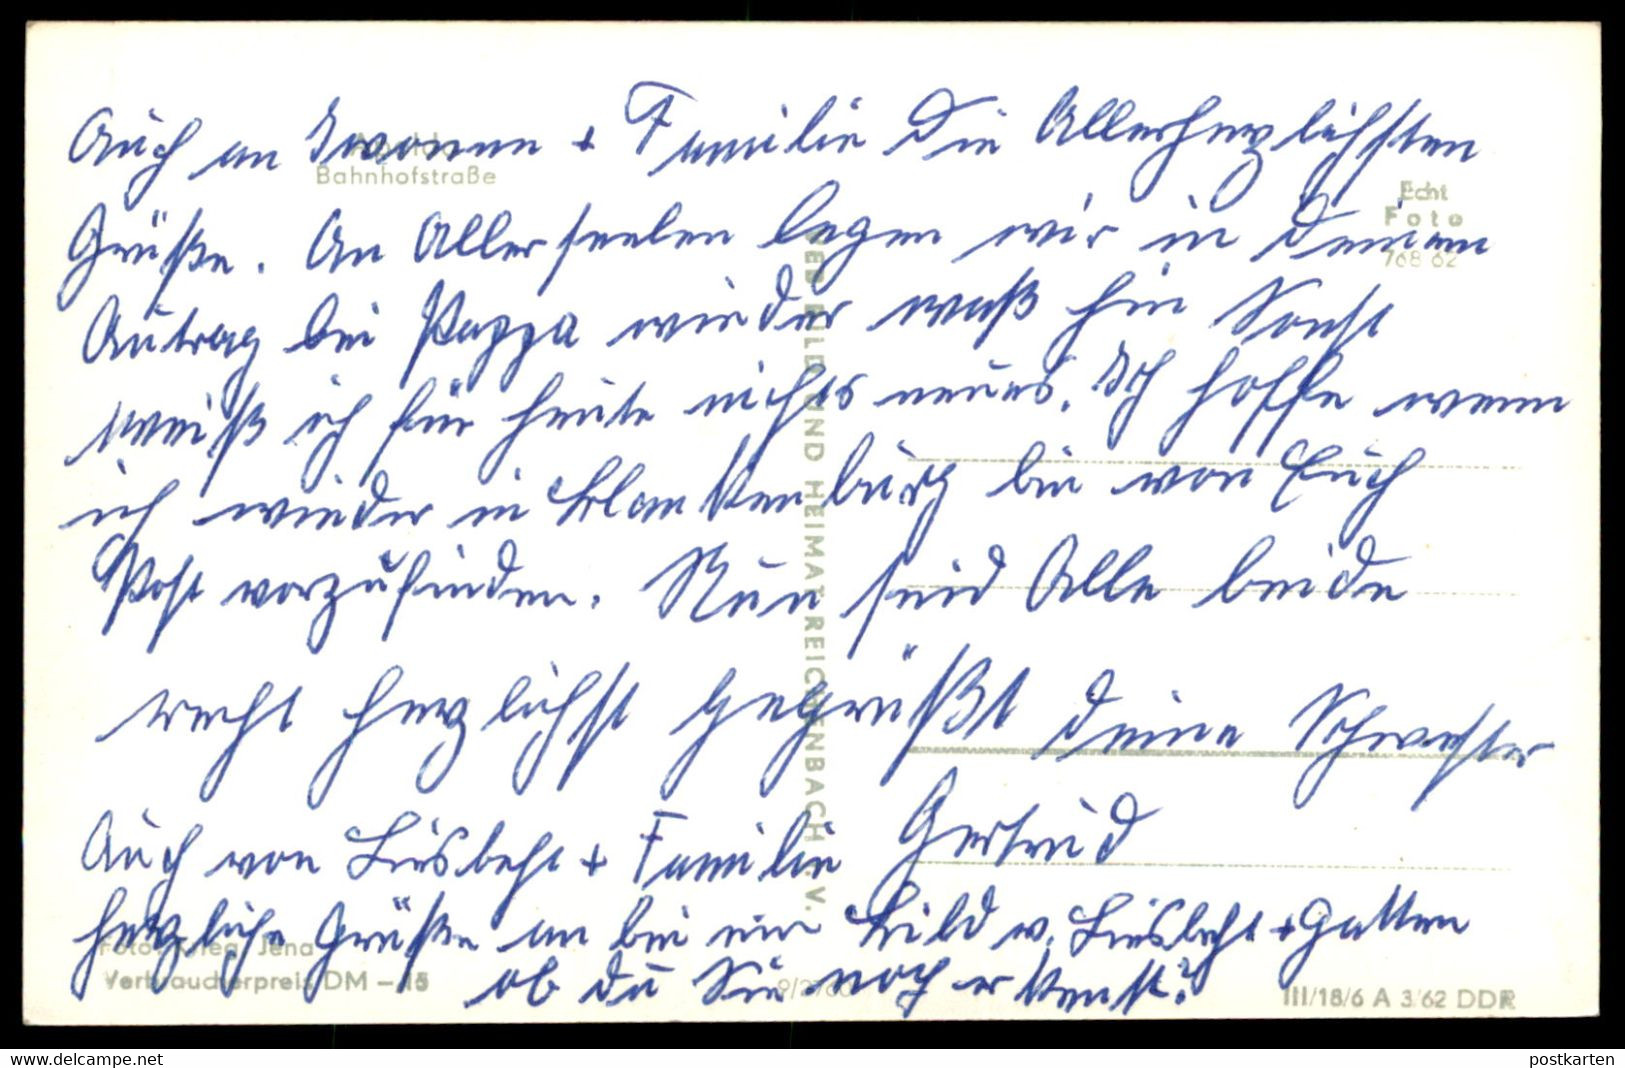 Auch an Iwonne + Familie Die Allerherzlichsten
Bahnhofstraße
Echt
Foto
768 62
Grüße. An Allerseelen legen wir in Deinen
Autrag bei Pappa wieder waß hin Sonst
weiß ich für heute nichts neues. Ich hoffe wenn
ich wieder in Blankenburg bin von Euch
Post vorzufinden. Nun seid Alle beide
recht herzlichst gegrüßt deine Schwester
Gertrud
Auch von Liesbeht + Familie
herzliche Grüße an bei ein Bild v. Liesbeht + Gatten
ob du Sie noch erkenst?
VEB BILD UND HEIMAT REICHENBACH I. V.
Foto: Krieg, Jena
Verbraucherpreis DM –.15
III/18/6 A 3/62 DDR
www.delcampe.net
postkarten